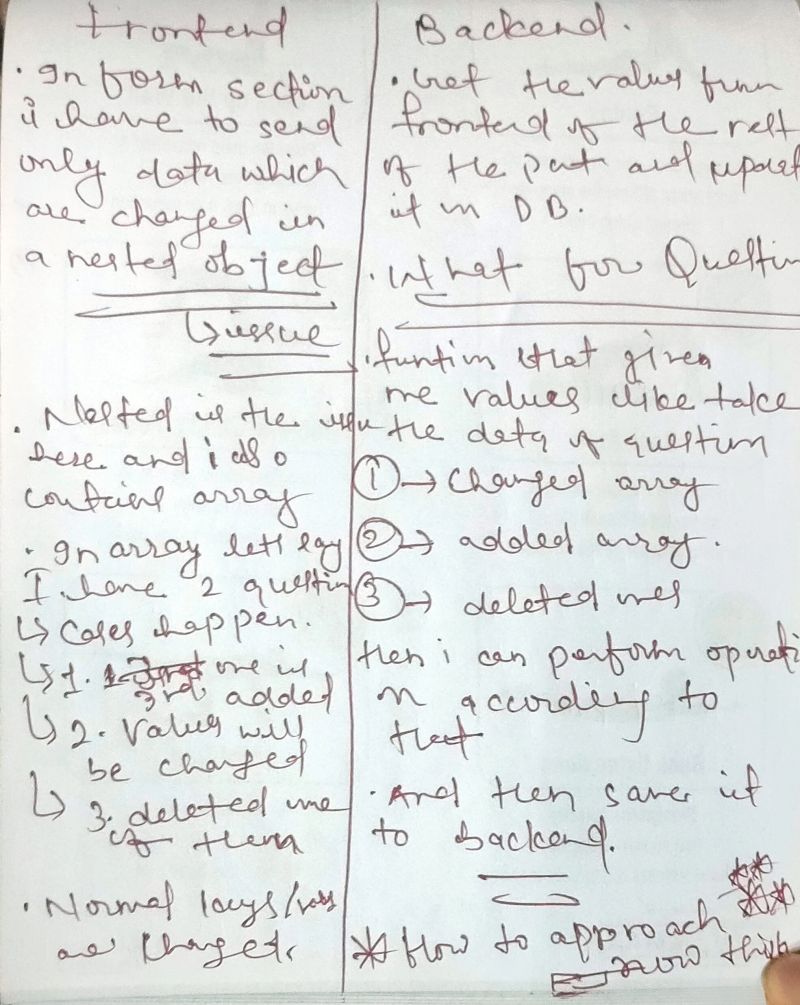 Frontend
· In form section
i have to send
only data which
are changed in
a nested object
↳ issue
· Nested is the issue
here and i also
contains array
· In array lets say
I have 2 question
↳ Cases happen.
↳ 1. one is
3rd added
↳ 2. Values will
be changed
↳ 3. deleted one
of them
· Normal keys/
are changed.
Backend.
· Get the values from
frontend of the rest
of the part and update
it in DB.
· What for Question
· function that given
me values like take
the data of question
① → Changed array
② → added array.
③ → deleted ones
then i can perform operati
on according to
that
· And then save it
to backend.
* How to approach
now think